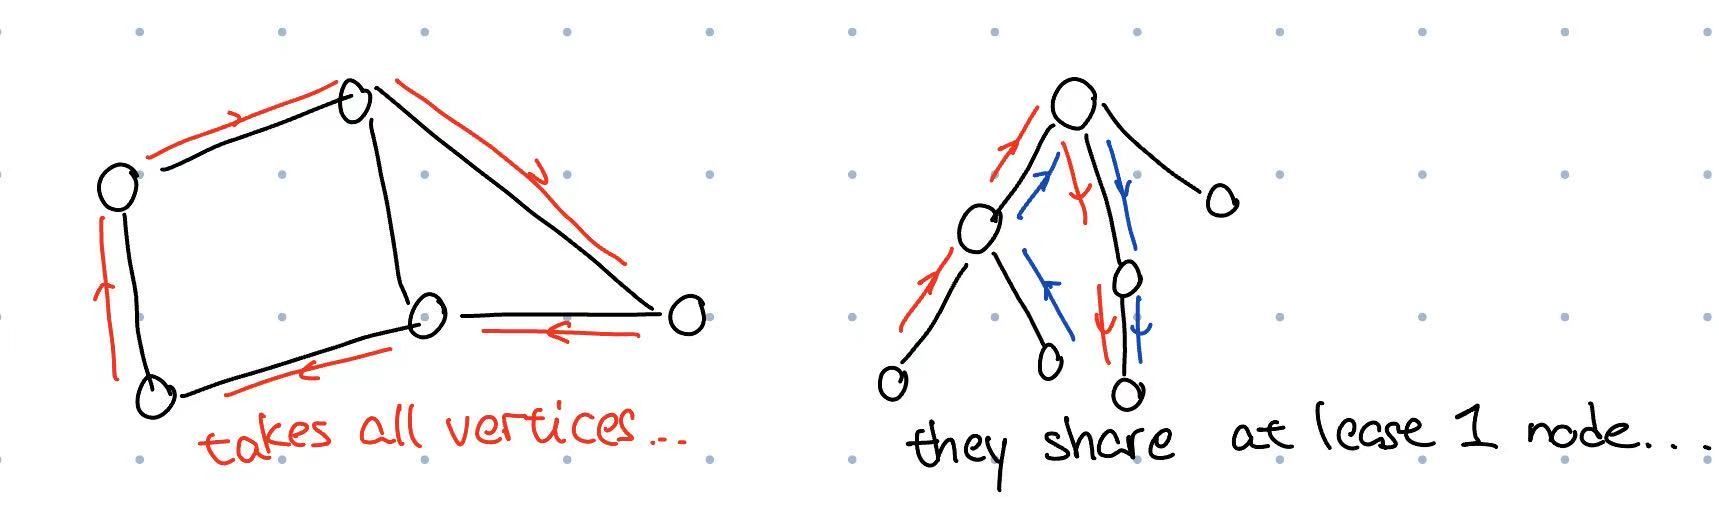 takes all vertices...
they share at lease 1 node...